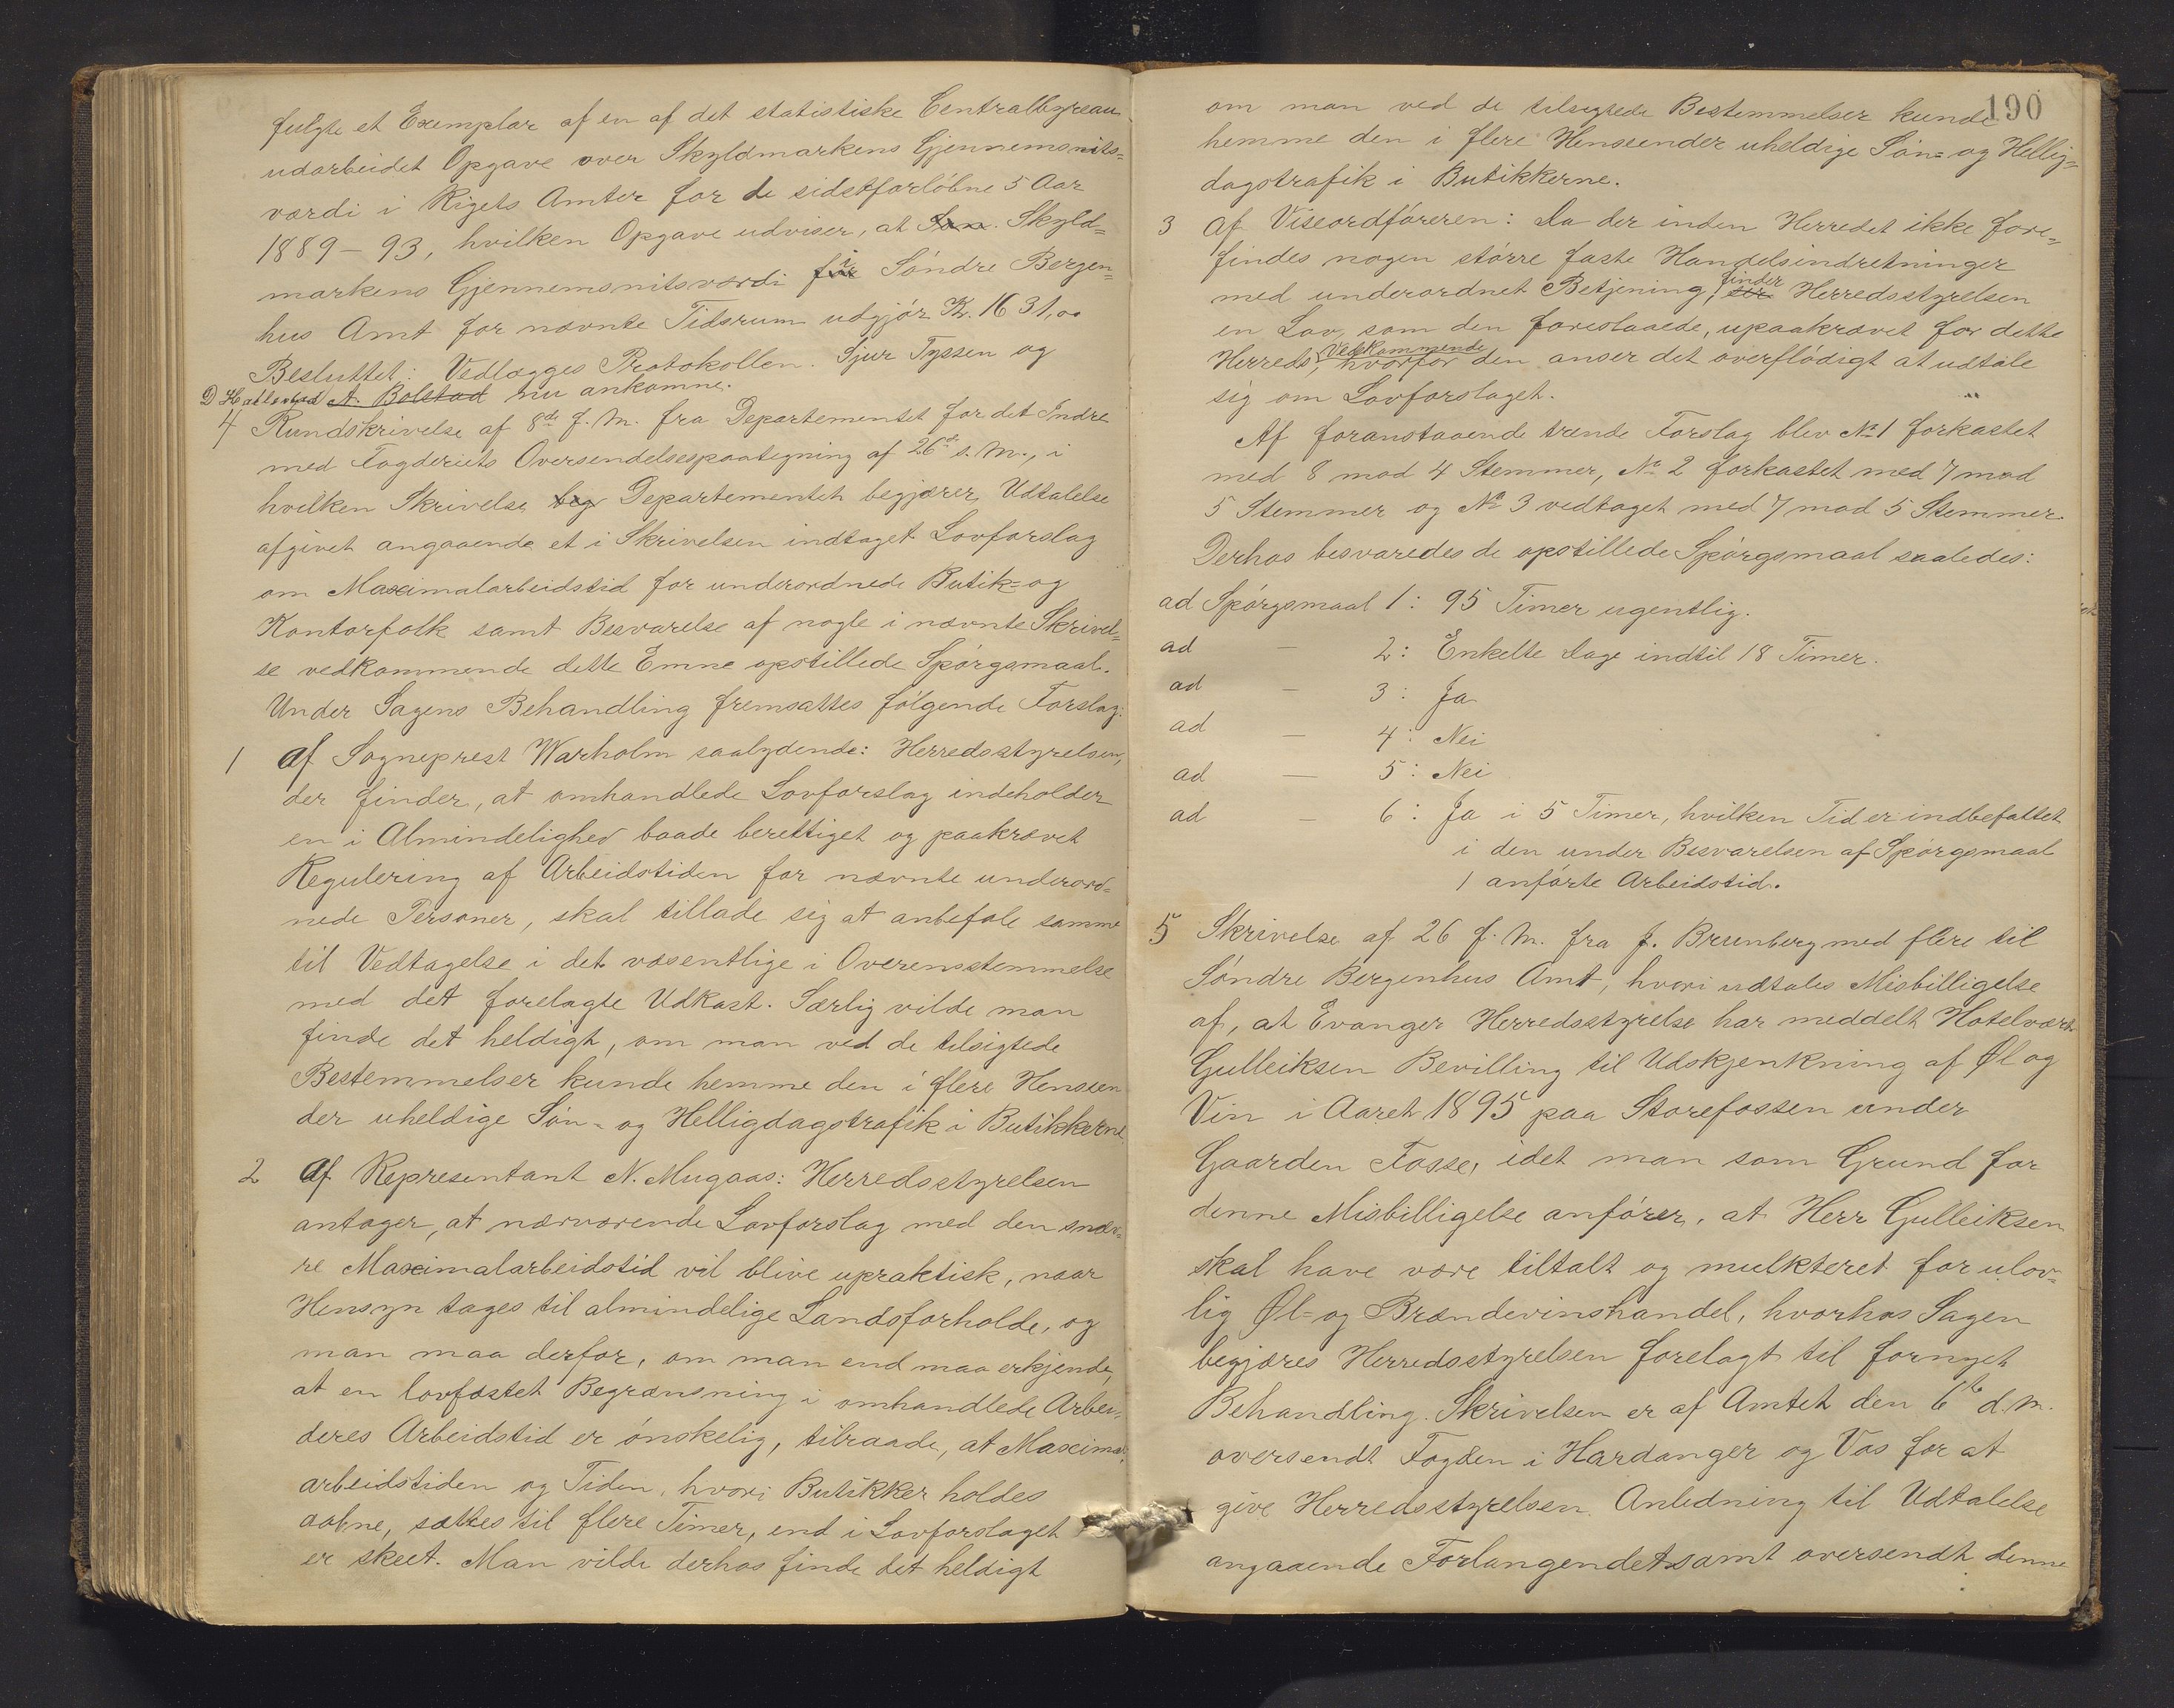 fulgte et Exemplar af en af det statistiske Centralbyreau
udarbeidet Opgave over Skyldmarkens Gjennemsnits=
værdi i Rigets Amter for de sidstforløbne 5 Aar
1889-93, hvilken Opgave udviser, at San. Skyld=
markens Gjennemsnitsværdi for i Søndre Bergen=
hus Amt for nævnte Tidsrum udgjør Kr. 1631,00
Besluttet: Vedlægges Protokollen. Sjur Tyssen og
D Hallestad A. Bolstad nu ankomne.
4 Rundskrivelse af 8de f. M. fra Departementet for det Indre
med Fogderiets Oversendelsespaategning af 26de s. M., i
hvilken Skrivelse beg Departementet begjærer Udtalelse
afgivet angaaende et i Skrivelsen indtaget Lovforslag
om Maximalarbeidstid for underordnede Butik= og
Kontorfolk samt Besvarelse af nogle i nævnte Skrivel=
se vedkommende dette Emne opstillede Spørgsmaal.
Under Sagens Behandling fremsattes følgende Forslag:
1 Af Sogneprest Warholm saalydende: Herredsstyrelsen,
der finder, at omhandlede Lovforslag indeholder
en i Almindelighed baade berettiget og paakrævet
Regulering af Arbeidstiden for nævnte underord=
nede Personer, skal tillade sig at anbefale samme
til Vedtagelse i det væsentlige i Overensstemmelse
med det forelagte Udkast. Særlig vilde man
finde det heldigt, om man ved de tilsigtede
Bestemmelser kunde hemme den i flere Henseen
der uheldige Søn- og Helligdagstrafik i Butikkerne.
2 Af Representant N. Mugaas: Herredsstyrelsen
antager, at nærværende Lovforslag med den snæv=
re Maximalarbeidstid vil blive upraktisk, naar
Hensyn tages til almindelige Landsforholde, og
man maa derfor, om man end maa erkjende,
at en lovfæstet Begrænsning i omhandlede Arbei=
deres Arbeidstid er ønskelig, tilraade, at Maximal=
arbeidstiden og Tiden, hvori Butikker holdes
aabne, sættes til flere Timer, end i Lovforslaget
er skeet. Man vilde derhos finde det heldigt
190
om man ved de tilsigtede Bestemmelser kunde
hemme den i flere Henseender uheldige Søn= og Hellig=
dagstrafik i Butikkerne.
3 Af Viseordføreren: Da der inden Herredet ikke fore=
findes nogen større faste Handelsindretninger
med underordnet Betjening, finder Herredsstyrelsen
en Lov, som den foreslaaede, upaakrævet for dette
Herreds Vedkommende, hvorfor den anser det overflødigt at udtale
sig om Lovforslaget.
Af foranstaaende trænde Forslag blev No 1 forkastet
med 8 mod 4 Stemmer, No 2 forkastet med 7 mod
5 Stemmer og No 3 vedtaget med 7 mod 5 Stemmer.
Derhos besvaredes de opstillede Spørgsmaal saaledes:
ad Spørgsmaal 1: 95 Timer ugentlig.
ad — 2: Enkelte Dage indtil 18 Timer.
ad — 3: Ja
ad — 4: Nei
ad — 5: Nei
ad — 6: Ja i 5 Timer, hvilken Tid er indbefattet
i den under Besvarelsen af Spørgsmaal
1 anførte Arbeidstid.
5 Skrivelse af 26 f. M. fra J. Brunberg med flere til
Søndre Bergenhus Amt, hvori udtales Misbilligelse
af, at Evanger Herredsstyrelse har meddelt Hotelvært
Gulleiksen Bevilling til Udskjenkning af Øl og
Vin i Aaret 1895 paa Storefossen under
Gaarden Fosse, idet man som Grund for
denne Misbilligelse anfører, at Herr Gulleiksen
skal have være tiltalt og mulkteret for ulov=
lig Øl= og Brændevinshandel, hvorhos Sagen
begjæres Herredsstyrelsen forelagt til fornyet
Behandling. Skrivelsen er af Amtet den 6te d. M.
oversendt Fogden i Hardanger og Vos for at
give Herredsstyrelsen Anledning til Udtalelse
angaaende Forlangendet samt oversendt denne